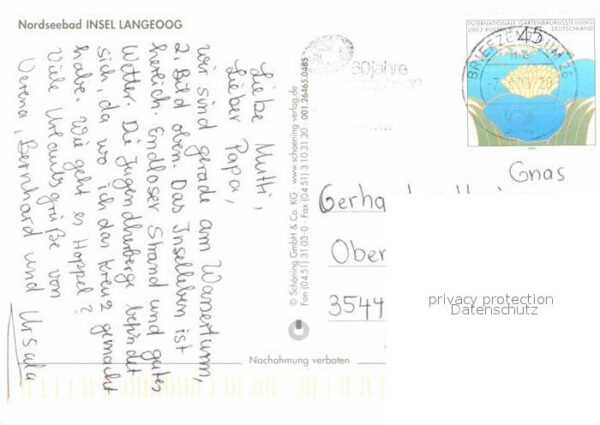 Nordseebad INSEL LANGEOOG
Liebe Mutti,
Lieber Papa,
wir sind gerade am Wasserturm,
2. Bild oben. Das Inselleben ist
herrlich. Endloser Strand und gutes
Wetter. Die Jugendherberge befindet
sich, da wo ich das Kreuz gemacht
habe. Wie geht es Hoppel?
Viele Urlaubsgrüße von
Verena, Bernhard und Ursula
© Schöning GmbH & Co. KG · www.schoening-verlag.de
Fon (04 51) 31 03-0 · Fax (04 51) 3 10 31 30 · 001 26465.0485
Nachahmung verboten
INTERNATIONALE GARTENBAUAUSSTELLUNG
2003 DEUTSCHLAND
45
BRIEFZENTRUM 26
60 Jahre
Gnas
Gerha
Ober
3544
privacy protection
Datenschutz